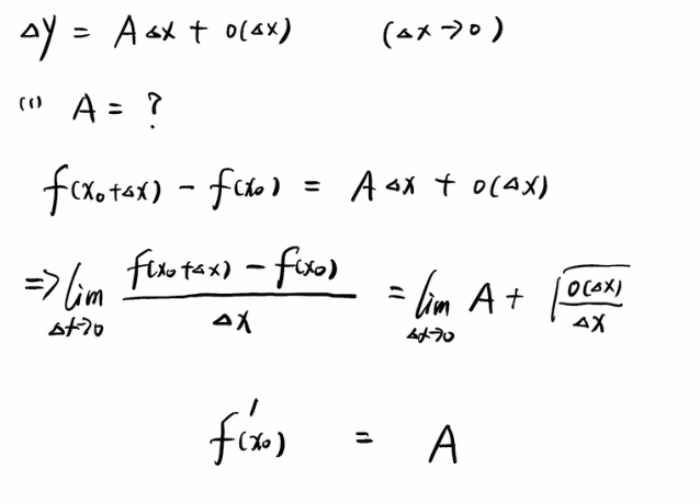 Δy = AΔx + o(Δx) (Δx→0)
(1) A = ?
f(x₀+Δx) − f(x₀) = AΔx + o(Δx)
⇒ lim_{Δx→0} \frac{f(x₀+Δx) − f(x₀)}{Δx} = lim_{Δx→0} A + \frac{o(Δx)}{Δx}
f′(x₀) = A